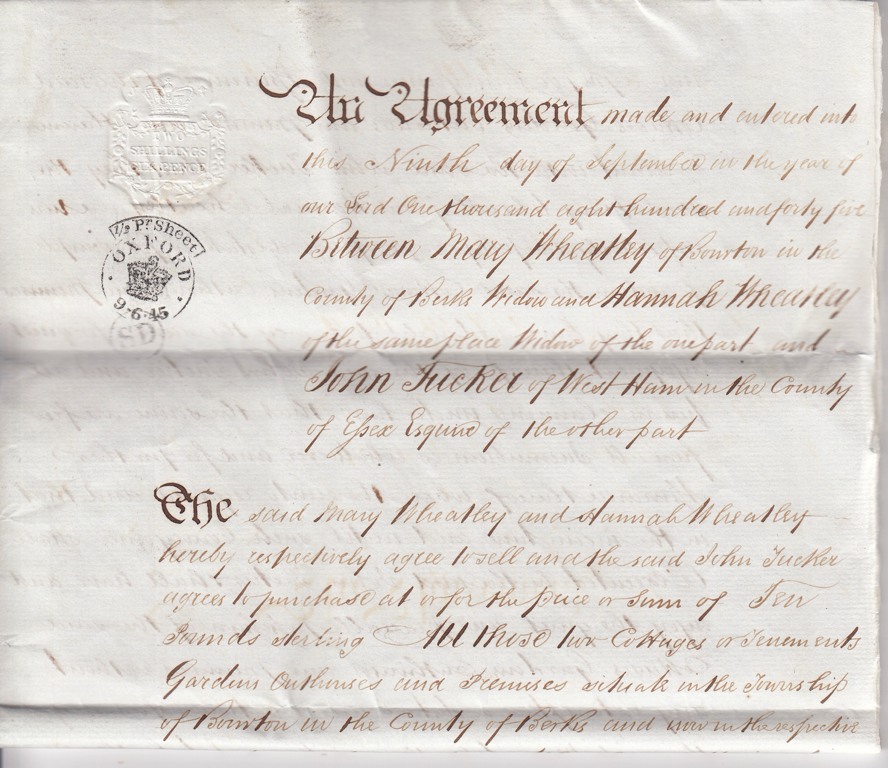 TWO
SHILLINGS
SIXPENCE
2/6 Pr. Sheet
OXFORD
9·6·45
SD
An Agreement made and entered into
this Ninth day of September in the year of
our Lord One thousand eight hundred and forty five
Between Mary Wheatley of Bourton in the
County of Berks Widow and Hannah Wheatley
of the same place Widow of the one part and
John Tucker of West Ham in the County
of Essex Esquire of the other part
The said Mary Wheatley and Hannah Wheatley
hereby respectively agree to sell and the said John Tucker
agrees to purchase at or for the price or sum of Ten
Pounds sterling All those two Cottages or Tenements
Gardens Outhouses and Premises situate in the Township
of Bourton in the County of Berks and now in the respective